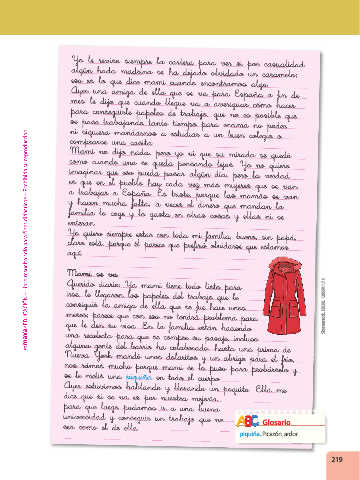 Yo le revise siempre la cartera para ver si por casualidad
algún hada madrina se ha dejado olvidado un caramelo;
eso es lo que dice mami cuando encontramos algo.
Ayer una amiga de ella que se va para España a fin de
mes le dijo que cuando llegue va a averiguar cómo hacer
para conseguirle papeles de trabajo, que no es posible que
se pase trabajando tanto tiempo para nada y no pueda
ni siquiera mandarnos a estudiar a un buen colegio o
comprarse una casita.
Mami no dijo nada, pero yo vi que su mirada se quedó
como cuando una se queda pensando lejos. Yo no quiero
imaginar que eso pueda pasar algún día, pero la verdad
es que en el pueblo hay cada vez más mujeres que se van
a trabajar a España. Es triste, porque las mamás se van
y hacen mucha falta, a veces el dinero que mandan la
familia lo coge y lo gasta en otras cosas y ellas ni se
enteran.
Yo quiero siempre estar con toda mi familia, bueno, sin papá,
claro está, porque él parece que prefirió olvidarse que estamos
aquí.
Mami se va
Querido diario: Ya mami tiene todo listo para
irse, le llegaron los papeles del trabajo que le
consiguió la amiga de ella que se fue hace unos
meses, parece que con eso no tendrá problema para
que le den su visa. En la familia están haciendo
una recolecta para que se compre su pasaje, incluso
alguna gente del barrio ha colaborado, hasta una prima de
Nueva York mandó unos dolaritos y un abrigo para el frío,
nos reímos mucho porque mami se lo puso para probárselo y
se le metió una piquiña en todo el cuerpo.
Ayer estuvimos hablando y llorando un poquito. Ella me
dice que si se va es por nuestra mejoría,
para que luego podamos ir a una buena
universidad y conseguir un trabajo que no
sea como el de ella.
ABC Glosario
piquiña. Picazón, ardor.
219